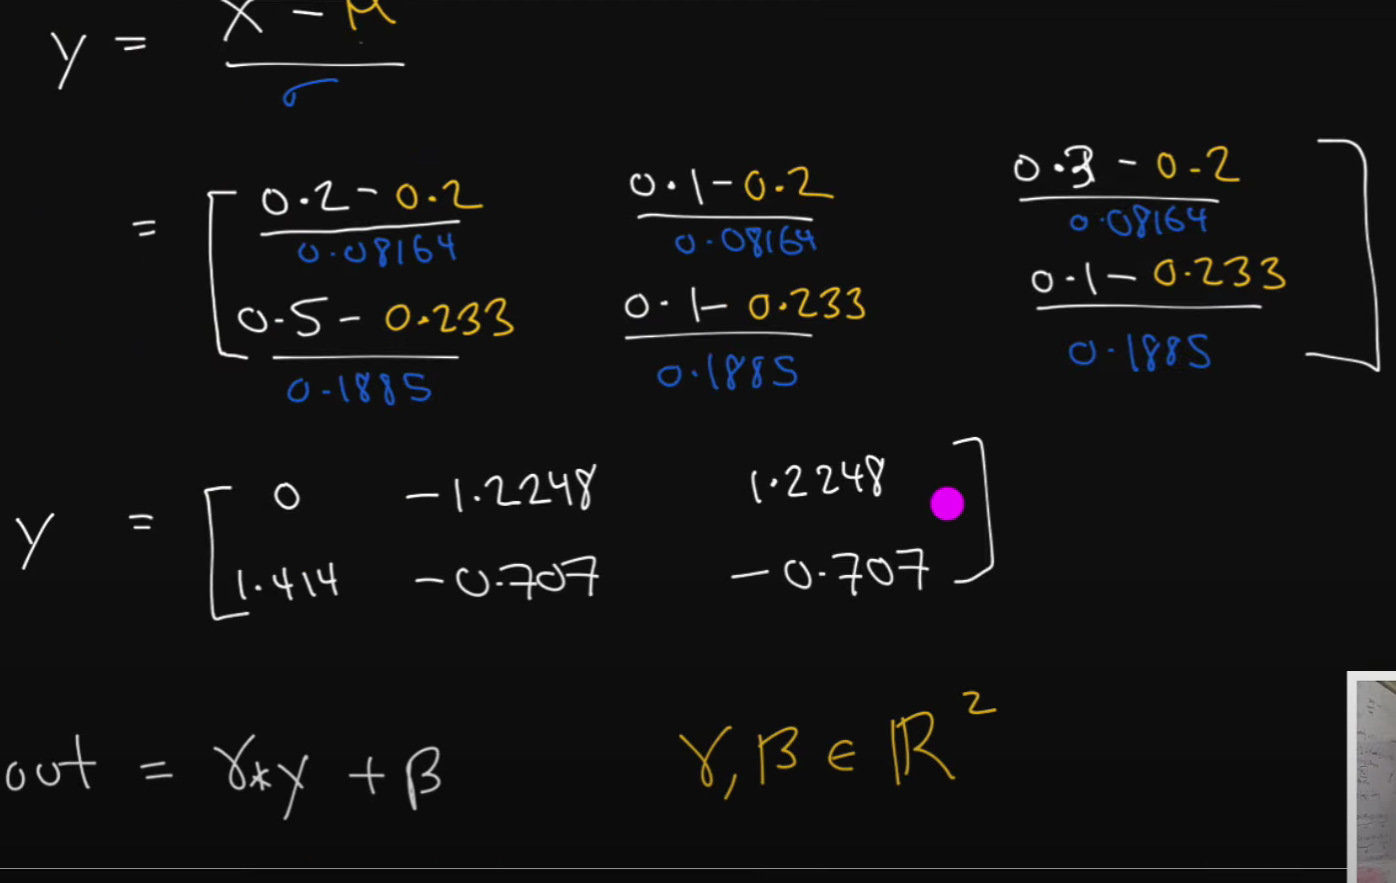 y = x - μ
σ
= [ 0.2 - 0.2 0.1 - 0.2 0.3 - 0.2 ]
0.08164 0.08164 0.08164
0.5 - 0.233 0.1 - 0.233 0.1 - 0.233
0.1885 0.1885 0.1885
y = [ 0 -1.2248 1.2248 ]
1.414 -0.707 -0.707
out = γ*y + β γ, β ∈ ℝ²